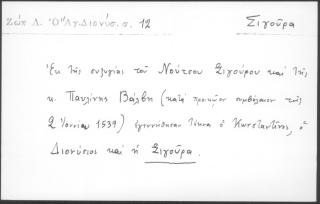 Ζώη Λ. Ὁ Ἅγ. Διονύσ. σ. 12
Σιγοῦρα
Ἐκ τῆς συζυγίας τοῦ Νούτσου Σιγούρου καὶ τῆς
κ. Παυλίνης Βάλβη (κατὰ προικῷον συμβόλαιον τῆς
2 Ἰουνίου 1539) ἐγεννήθησαν τέκνα ὁ Κωνσταντῖνος, ὁ
Διονύσιος καὶ ἡ Σιγοῦρα.